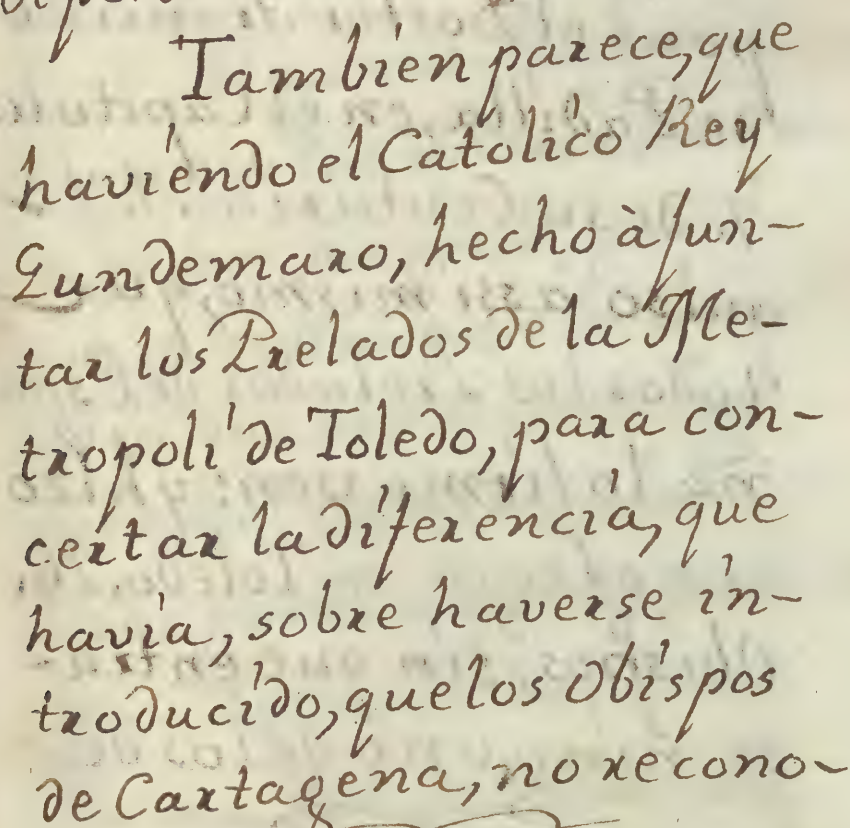 Tambien parece, que
haviendo el Catolico Rey
Gundemaro, hecho à jun-
tar los Prelados de la Me-
tropoli de Toledo, para con-
certar la diferencia, que
havia, sobre haverse in-
troducido, que los Obispos
de Cartagena, no recono-